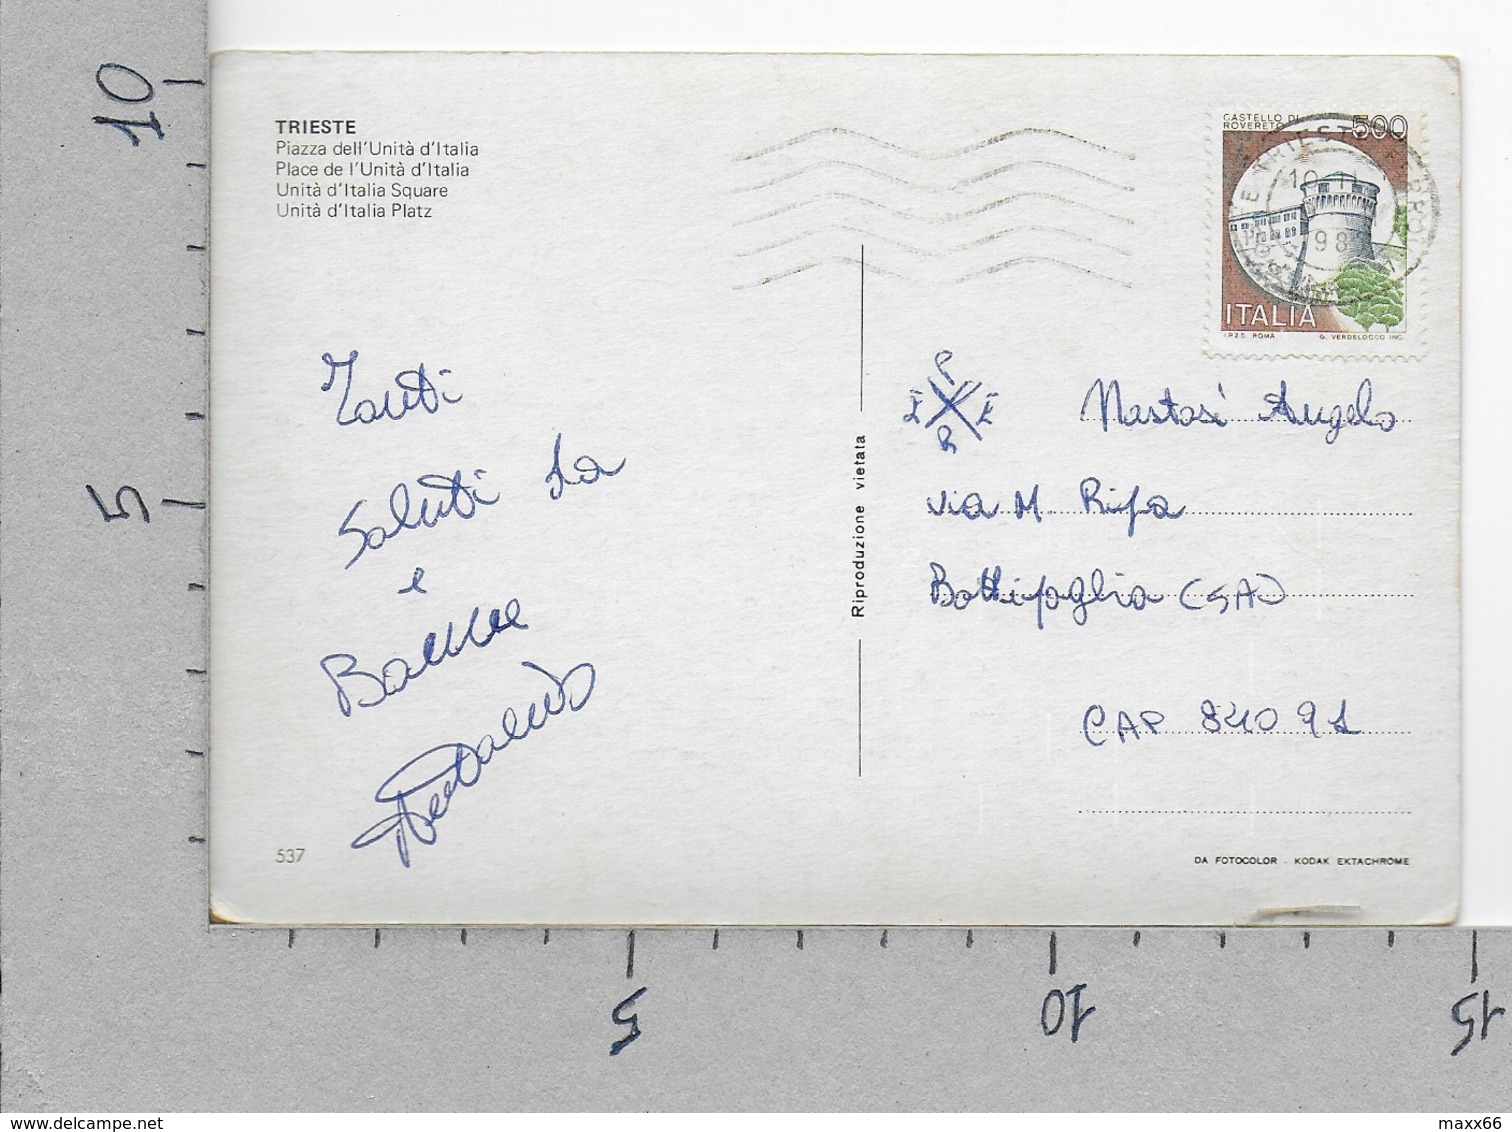 10
5
TRIESTE
Piazza dell'Unità d'Italia
Place de l'Unità d'Italia
Unità d'Italia Square
Unità d'Italia Platz
CASTELLO DI
ROVERETO
500
TRIESTE
98
ITALIA
I.P.Z.S. ROMA G. VERDELOCCO INC.
Tanti
Saluti da
e
537
Riproduzione vietata
Nastasi Angelo
via M. Ripa
Battipaglia (SA)
CAP 84091
DA FOTOCOLOR - KODAK EKTACHROME
5
10
15
delcampe.net
maxx66